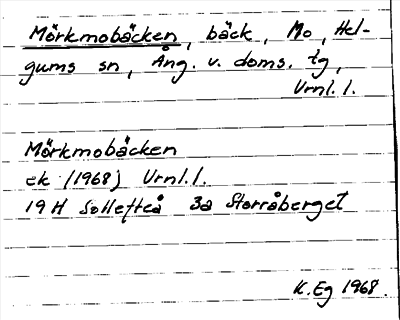 Mörkmobäcken, bäck, Mo, Hel-
gums sn, Ång. v. doms. tg,
Vrnl. l.
Mörkmobäcken
ek (1968) Vrnl. l.
19 H Sollefteå 3a Storråberget
K. Eg 1968.